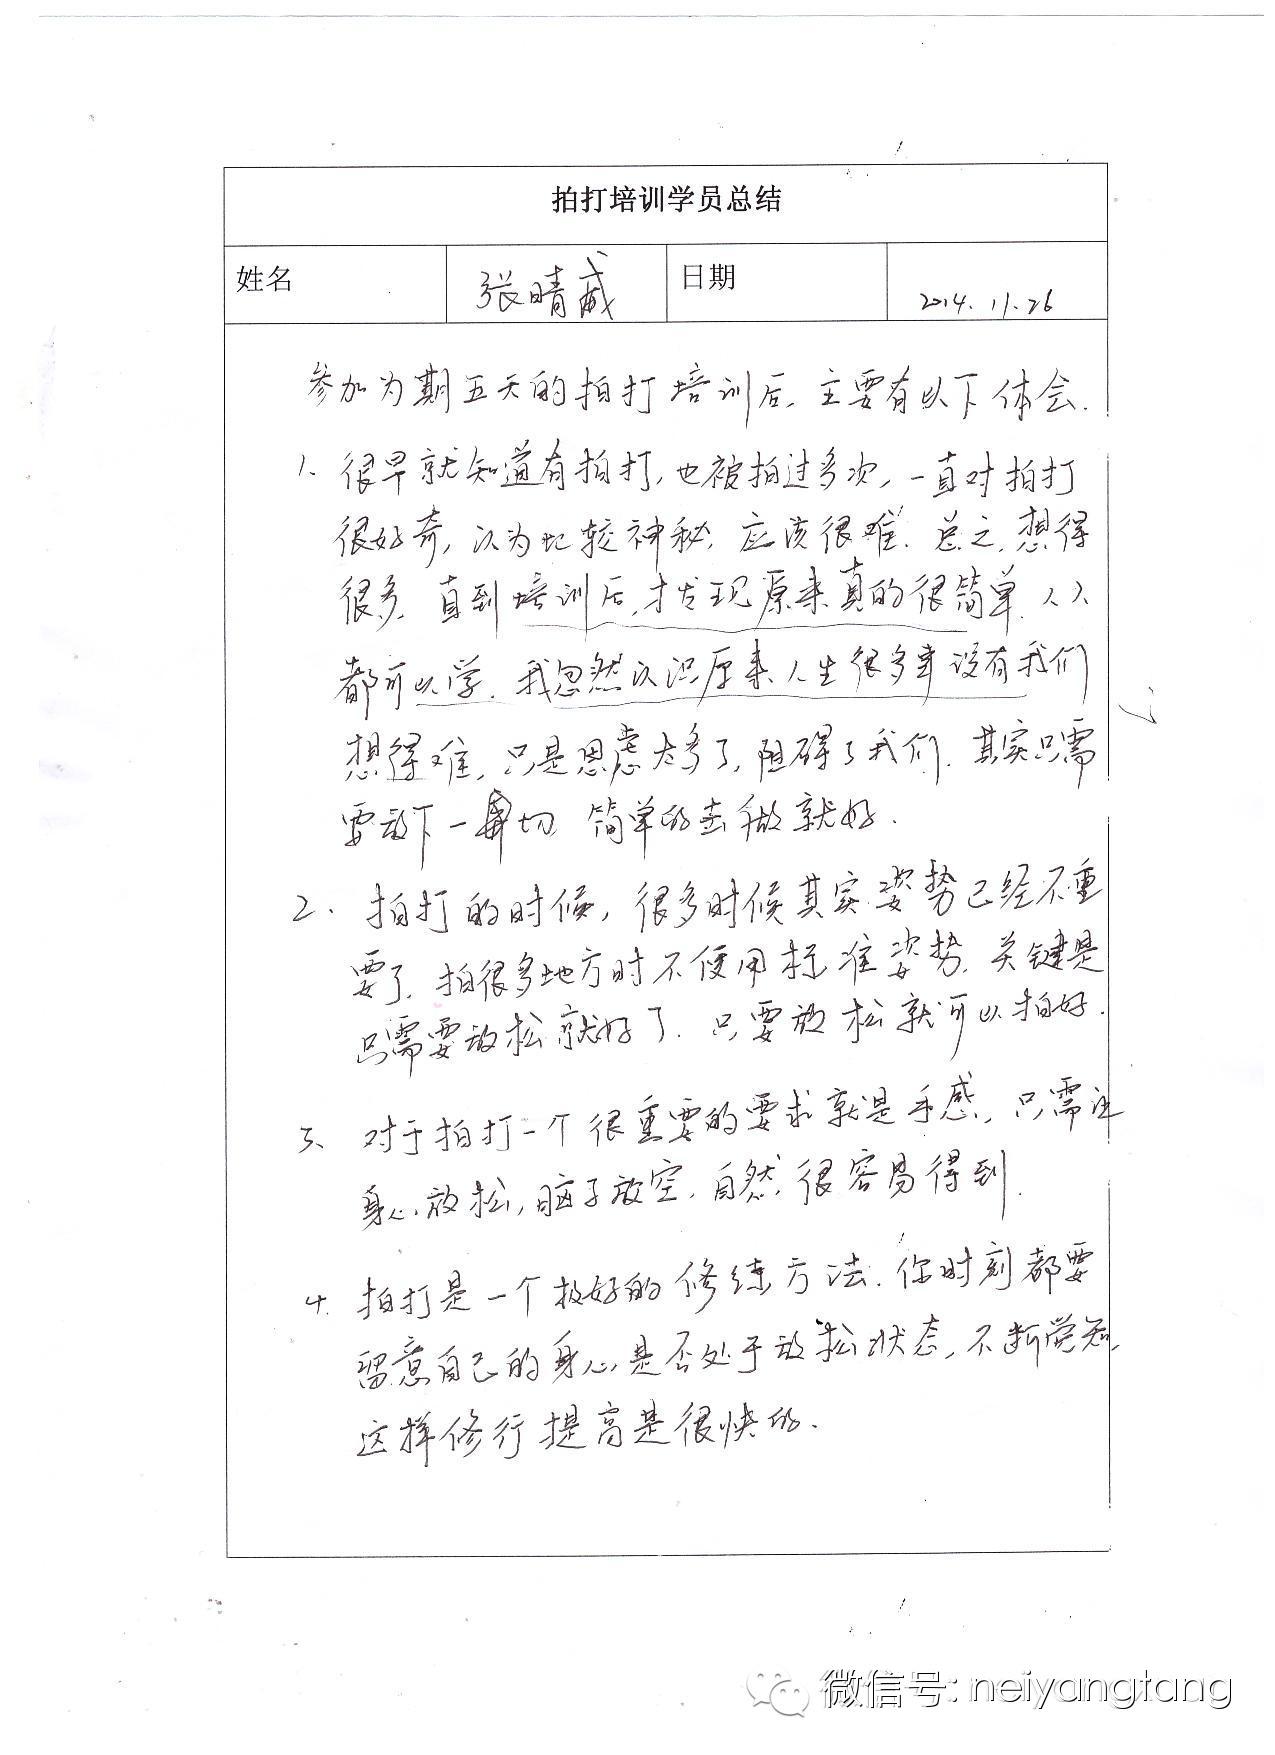 拍打培训学员总结
姓名 张晴 日期 2014.11.26
参加为期五天的拍打培训后,主要有以下体会.
1、很早就知道有拍打,也被拍过多次,一直对拍打
很好奇,认为比较神秘,应该很难.总之,想得
很多,直到培训后,才发现原来真的很简单,人人
都可以学.我忽然认识原来人生很多事没有我们
想得难,只是思虑太多了,阻碍了我们,其实只需
要放下一切 简单的去做就好.
2、拍打的时候,很多时候其实姿势已经不重
要了.拍很多地方时不便用标准姿势.关键是
只需要放松就好了.只要放松就可以拍好.
3、对于拍打一个很重要的要求就是手感,只需让
身心放松,脑子放空,自然,很容易得到.
4.拍打是一个极好的修练方法.你时刻都要
留意自己的身心是否处于放松状态,不断觉知,
这样修行提高是很快的.
微信号: neiyangtang